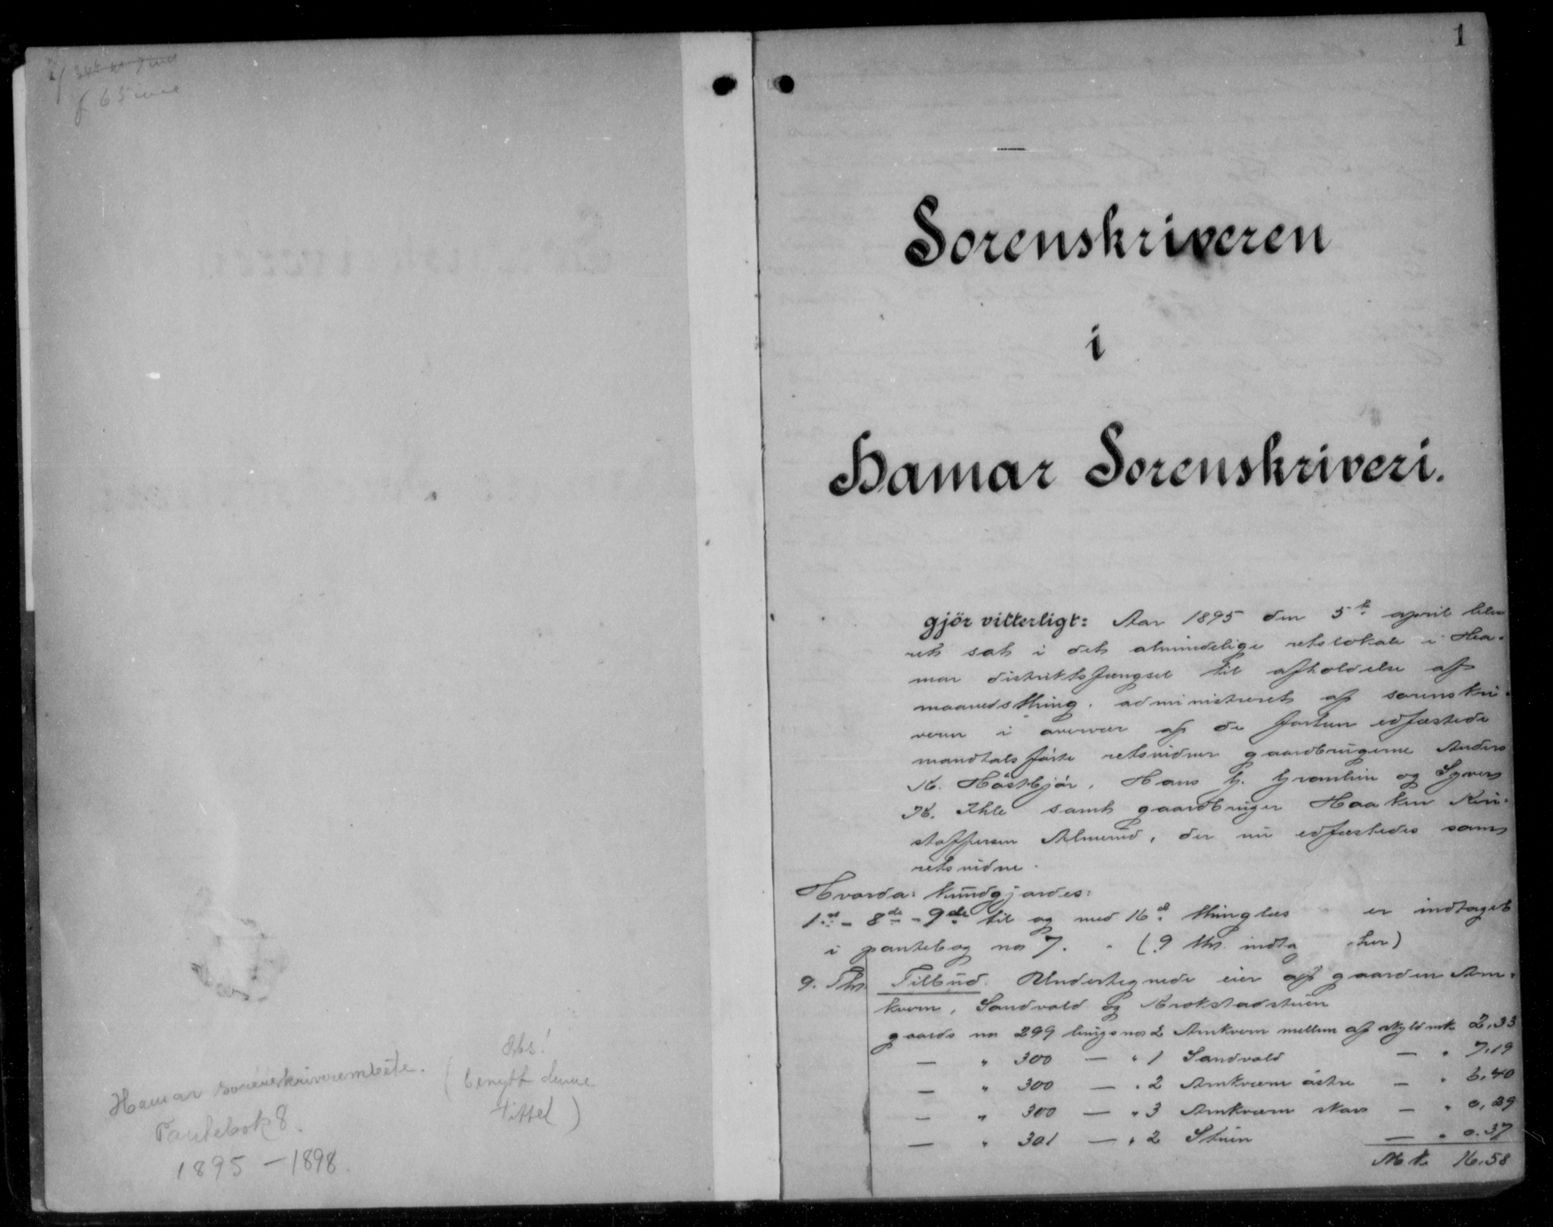 f 65
Hamar sorenskriverembete.
Pantebok 8.
1895 – 1898.
Obs!
(benytt denne
tittel)
1
Sorenskriveren
i
Hamar Sorenskriveri.
gjör vitterligt: Aar 1895 den 5te april blev
ret sat i det almindelige retslokale i Ha-
mar distriktsfængsel til afholdelse af
maanedsthing, administreret af sorenskri-
veren i overvær af de forhen edfæstede
mandtalsførte retsvidner gaardbrugerne Anders
K. Håstbjör, Hans G. og Syver
K. Ihle samt gaardbruger Haaken Kri-
stoffersen Almerud, der nu edfæstedes som
retsvidne.
Hvorda: kundgjordes:
1ste - 8de - 9de til og med 16de thinglæs er indtaget
i pantebog no 7. (9 ths. indtag her)
9. Ths Tilbud. Undertegnede eier af gaarden Arn-
kvern, Sandvold og Krokstadstuen
gaards no 299 brugs no 2 Arnkvern mellem af skyld mk. 2,33
— " 300 — " 1 Sandvold — " 7,19
— " 300 — " 2 Arnkvern östre — " 6,40
— " 300 — " 3 Arnkvern skov — " 0,29
— " 301 — " 2 Stuen — " 0.37
Mk. 16.58